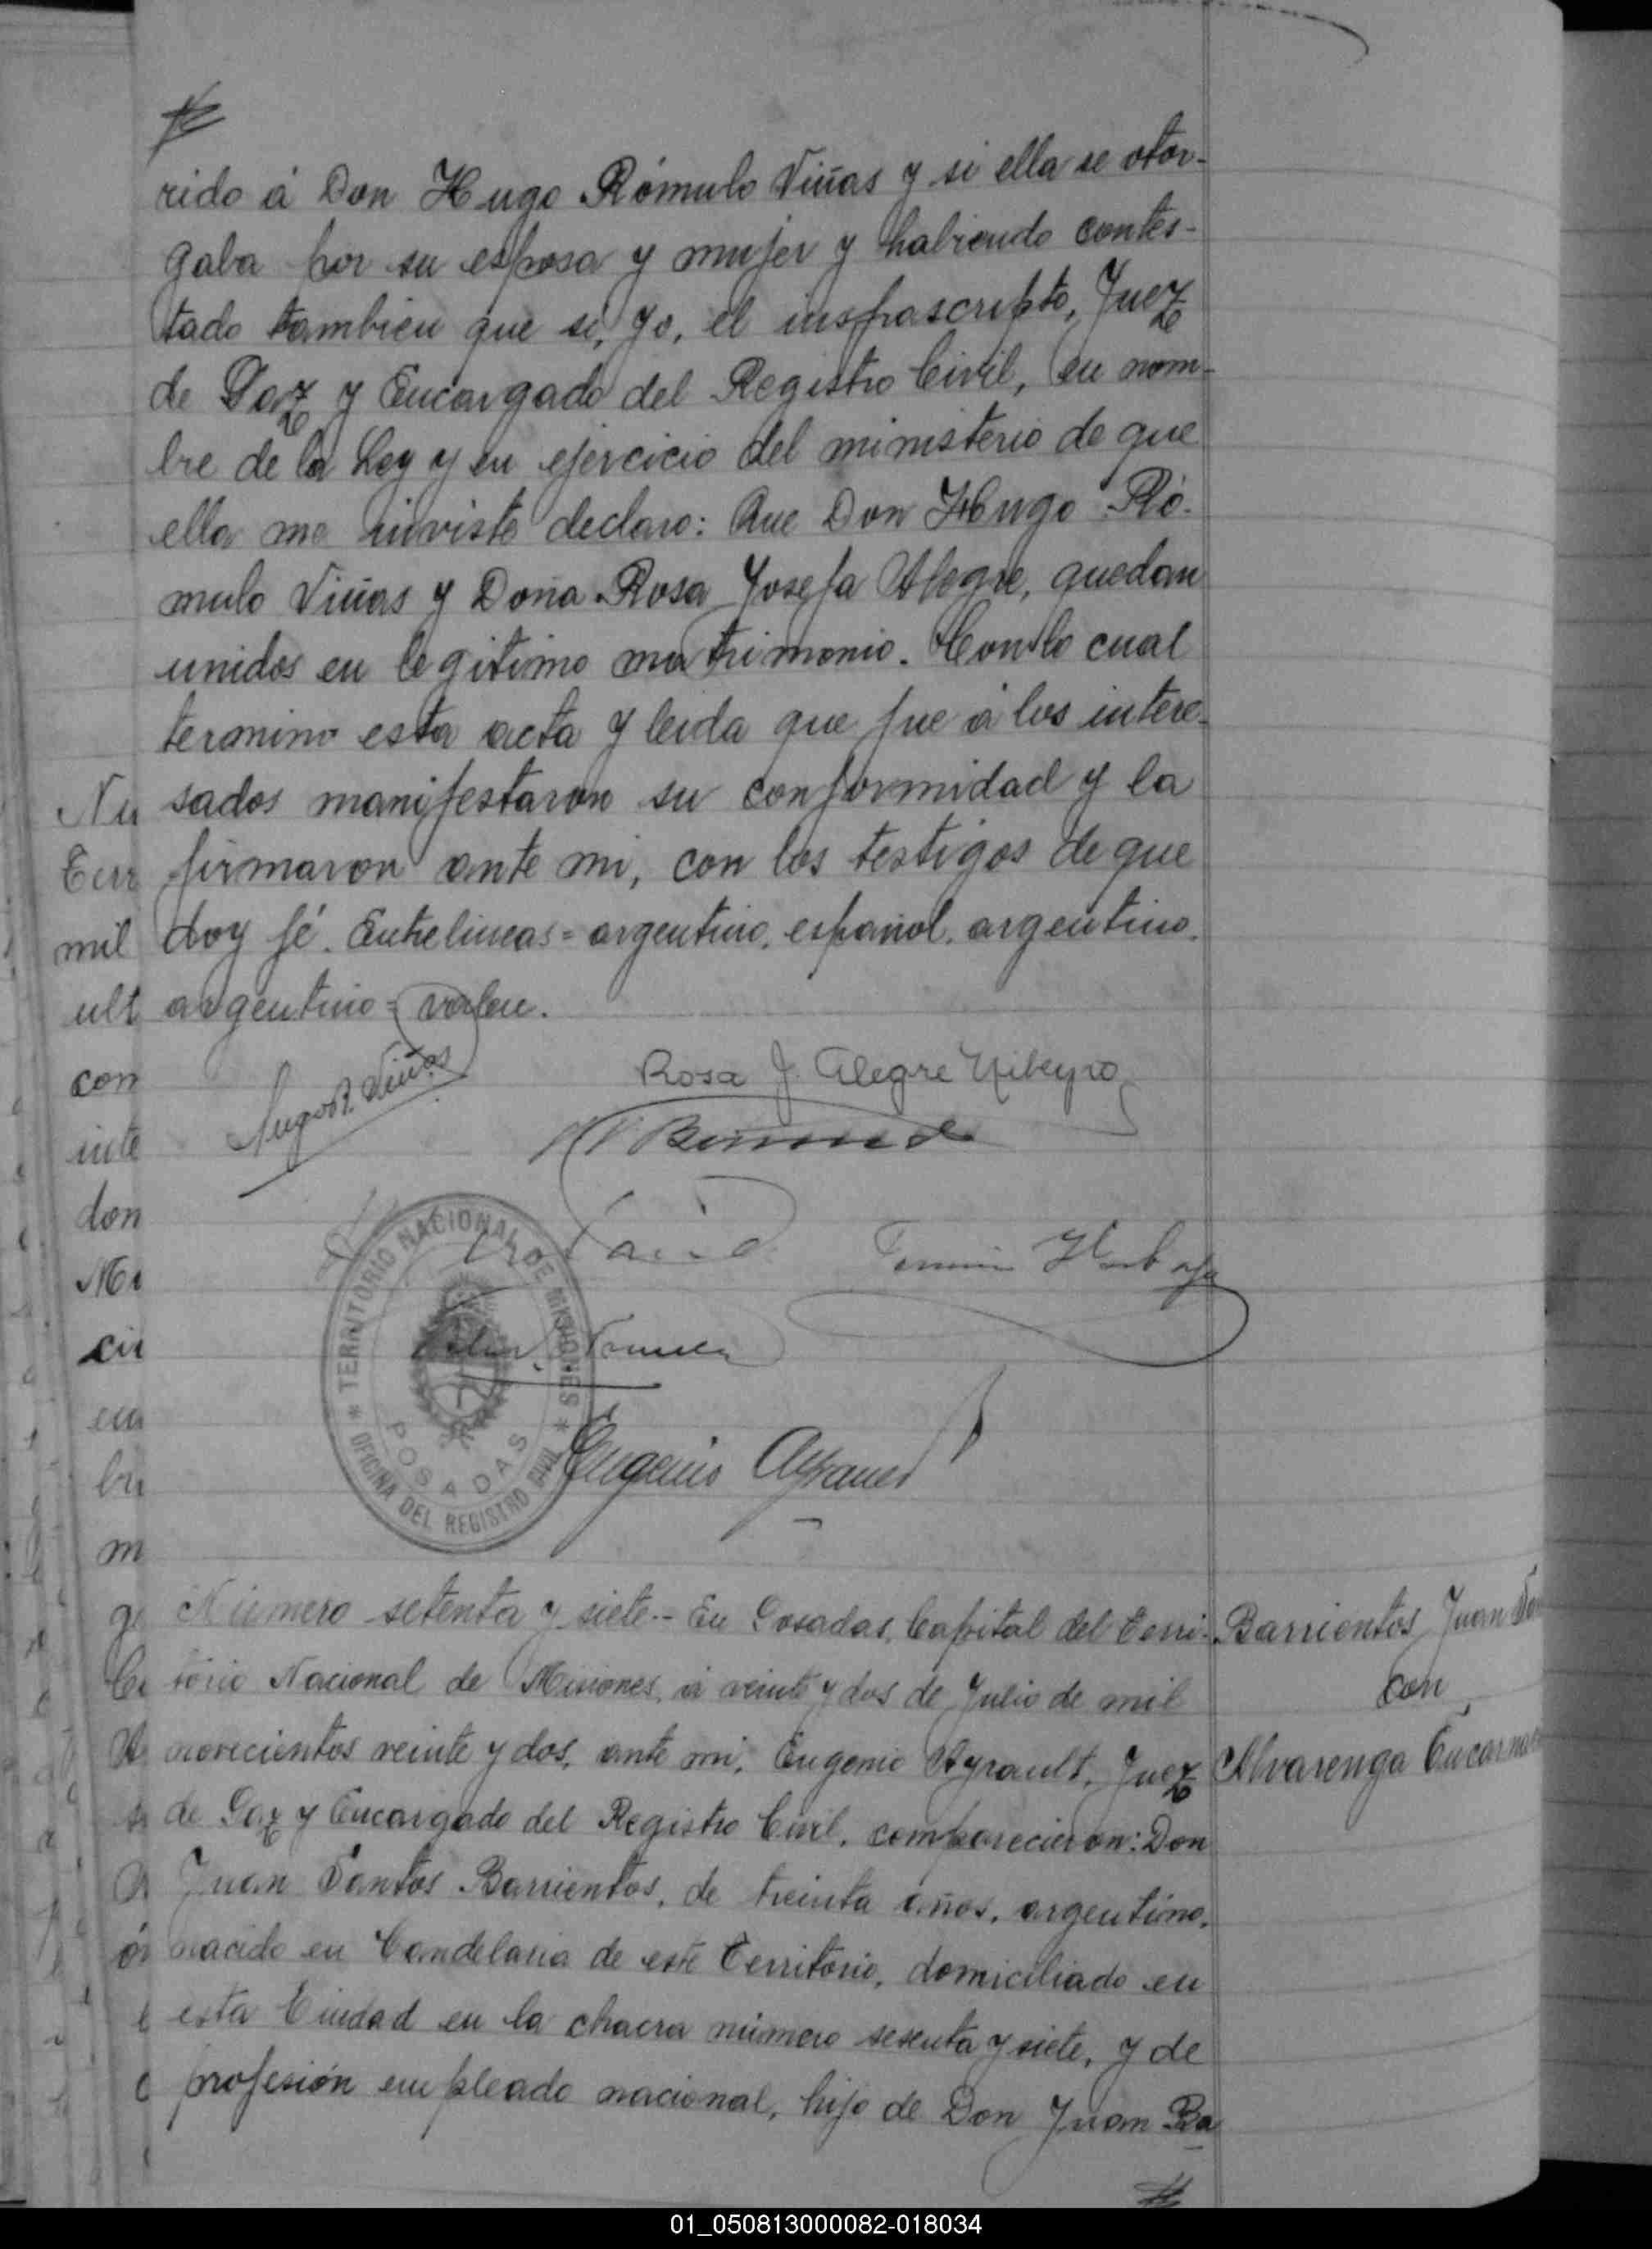 rido á Don Hugo Rómulo Viñas y si ella se otor-
gaba por su esposa y mujer y habiendo contes-
tado tambien que si, yo, el infrascripto, Juez
de Paz y Encargado del Registro Civil, en nom-
bre de la Ley y en ejercicio del ministerio de que
ella me inviste declaro: Que Don Hugo Ró-
mulo Viñas y Doña Rosa Josefa Alegre, quedan
unidos en legitimo matrimonio. Con lo cual
termino esta acta y leida que fue á los intere-
sados manifestaron su conformidad y la
firmaron ante mi, con los testigos de que
doy fé. Entrelineas = argentino, español, argentino,
argentino = valen.
Hugo R. Viñas
Rosa J. Alegre Ribeyro
TERRITORIO NACIONAL DE MISIONES
POSADAS
OFICINA DEL REGISTRO CIVIL
Eugenio Ayrault
Número setenta y siete.- En Posadas, Capital del Terri-
torio Nacional de Misiones, á veinte y dos de Julio de mil
novecientos veinte y dos, ante mi, Eugenio Ayrault, Juez
de Paz y Encargado del Registro Civil, comparecieron: Don
Juan Santos Barrientos, de treinta años, argentino,
nacido en Candelaria de este Territorio, domiciliado en
esta Ciudad en la chacra número sesenta y siete, y de
profesión empleado nacional, hijo de Don Juan Ba
Barrientos Juan
con
Alvarenga
Nu
Terr
mil
ult
con
inte
don
Mi
ciu
en
bu
m
01_050813000082-018034